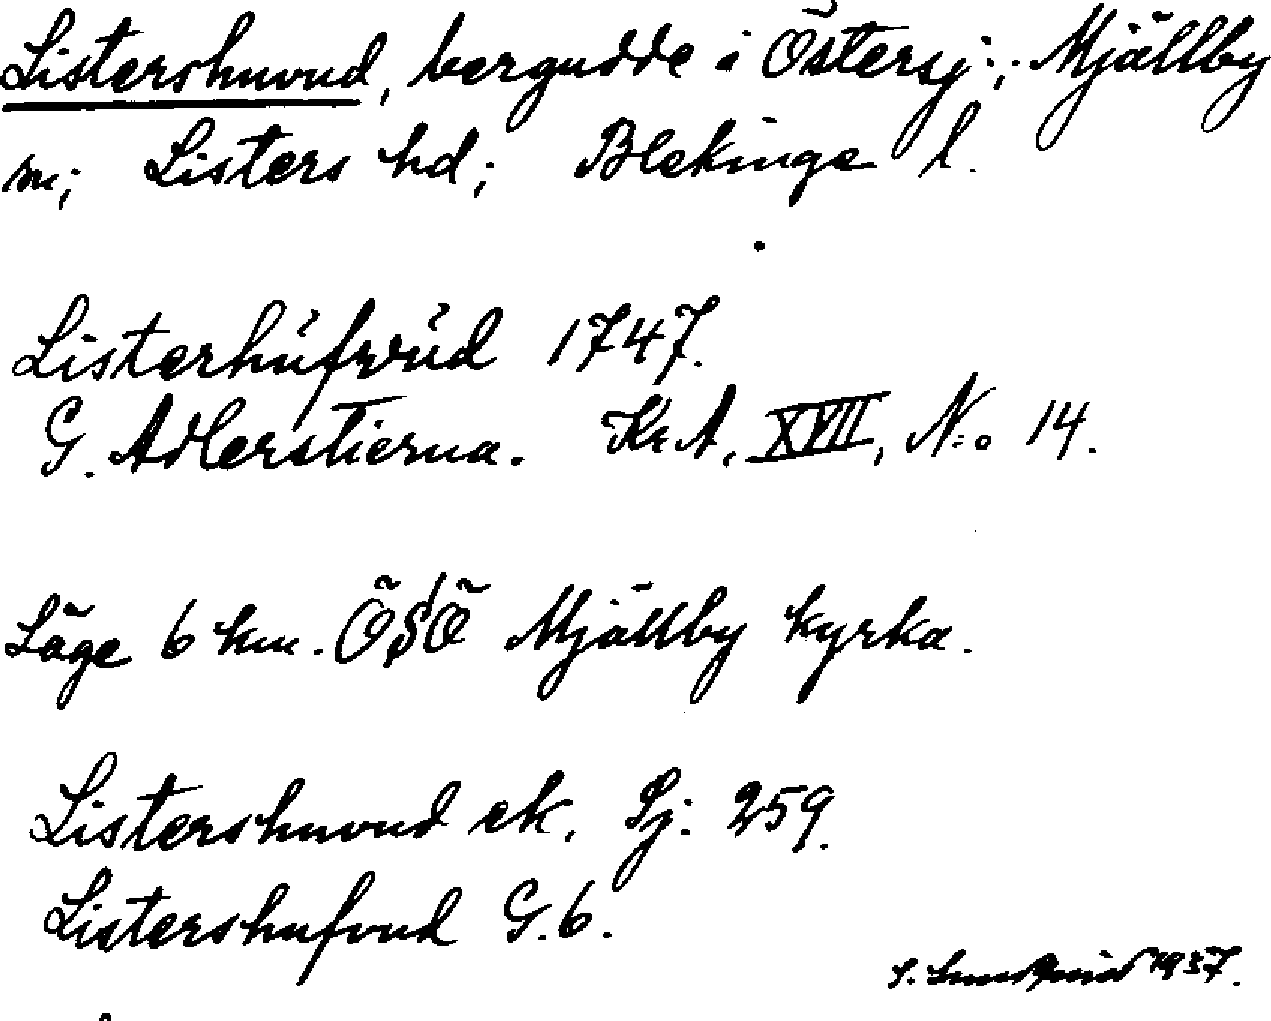 Listershuvud, bergudde i Östersj:; Mjällby
sn; Listers hd; Blekinge l.
Listerhúfwúd 1747.
G. Adlerstierna. Kr.A, XVII, N:o 14.
Läge 6 km. ÖSÖ Mjällby kyrka.
Listershuvud ek. Sj: 259.
Listershufvud G.6.
S. 1937.